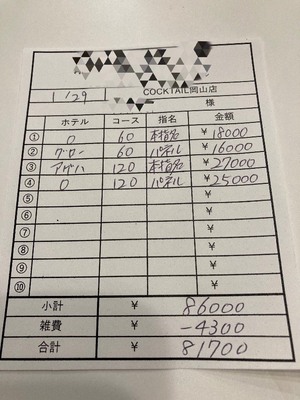 COCKTAIL岡山店
1/29 様
ホテル コース 指名 金額
① O 60 本指名 ¥18000
② グロー 60 パネル ¥16000
③ アゲハ 120 本指名 ¥27000
④ O 120 パネル ¥25000
⑤ ¥
⑥ ¥
⑦ ¥
⑧ ¥
⑨ ¥
⑩ ¥
小計 ¥ 86000
雑費 ¥ -4300
合計 ¥ 81700